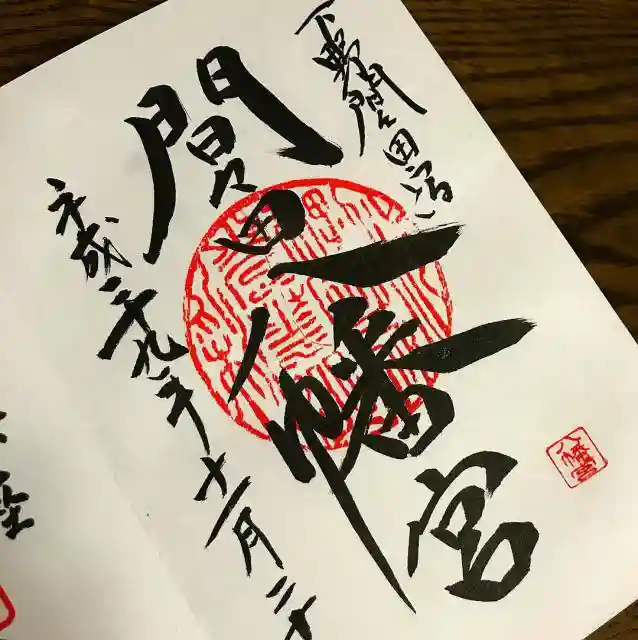 下野間々田宿
間々田八幡宮
平成二十九年十一月二十
八幡宮